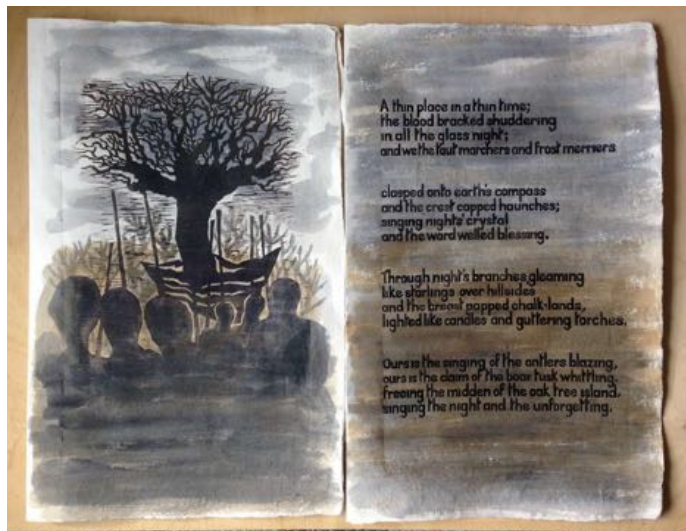 A thin place in a thin time;
the blood bracked shuddering
in all the glass night;
and we the taut marchers and frost merriers
clasped onto earth's compass
and the crest capped haunches;
singing nights' crystal
and the word welled blessing.
Through night's branches gleaming
like starlings over hillsides
and the breast papped chalk-lands,
lighted like candles and guttering torches.
Ours is the singing of the antlers blazing,
ours is the claim of the boar tusk whittling,
freeing the midden of the oak tree island,
singing the night and the unforgetting.